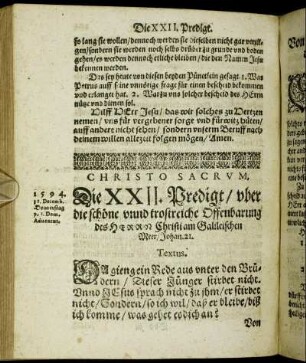 Die XXII. Predigt.
so lang sie wollen / dennoch werden sie dieselben nicht gar vertil-
gen / sondern sie werden noch selbst drüber zu grunde vnd boden
gehen / es werden dennoch etliche bleiben / die den Namen Jesu
bekennen werden.
Das sey heute von diesen beyden Pünctlein gesagt 1. Was
Petrus auff eine vnnötige frage für einen bescheid bekommen
vnd erlangt hat. 2. Was zu solcher bescheid des HErrn
nütze vnd dienen sol.
Hilff HErr Jesu / das wir solches zu Hertzen
nemen / vns für vergebener sorge vnd fürwitz hüten /
auff andere nicht sehen / sondern vnserm Beruff nach
deinem willen allezeit folgen mögen / Amen.
CHRISTO SACRUM,
1594.
Die XXII. Predigt / vber
die schöne vnnd trostreiche Offenbarung
des HERRN Christi am Galileischen
Meer, Johan. 21.
Textus.
DA gieng ein Rede aus vnter den Brü-
dern / Dieser Jünger stirbet nicht.
Vnnd JEsus sprach nicht zu jhm / er stirbet
nicht / Sondern / so ich wil / daß er bleibe / biß
ich komme / was gehet es dich an?
Von